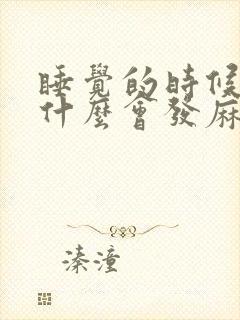 睡覺的時候
什麼會發麻
溱潼